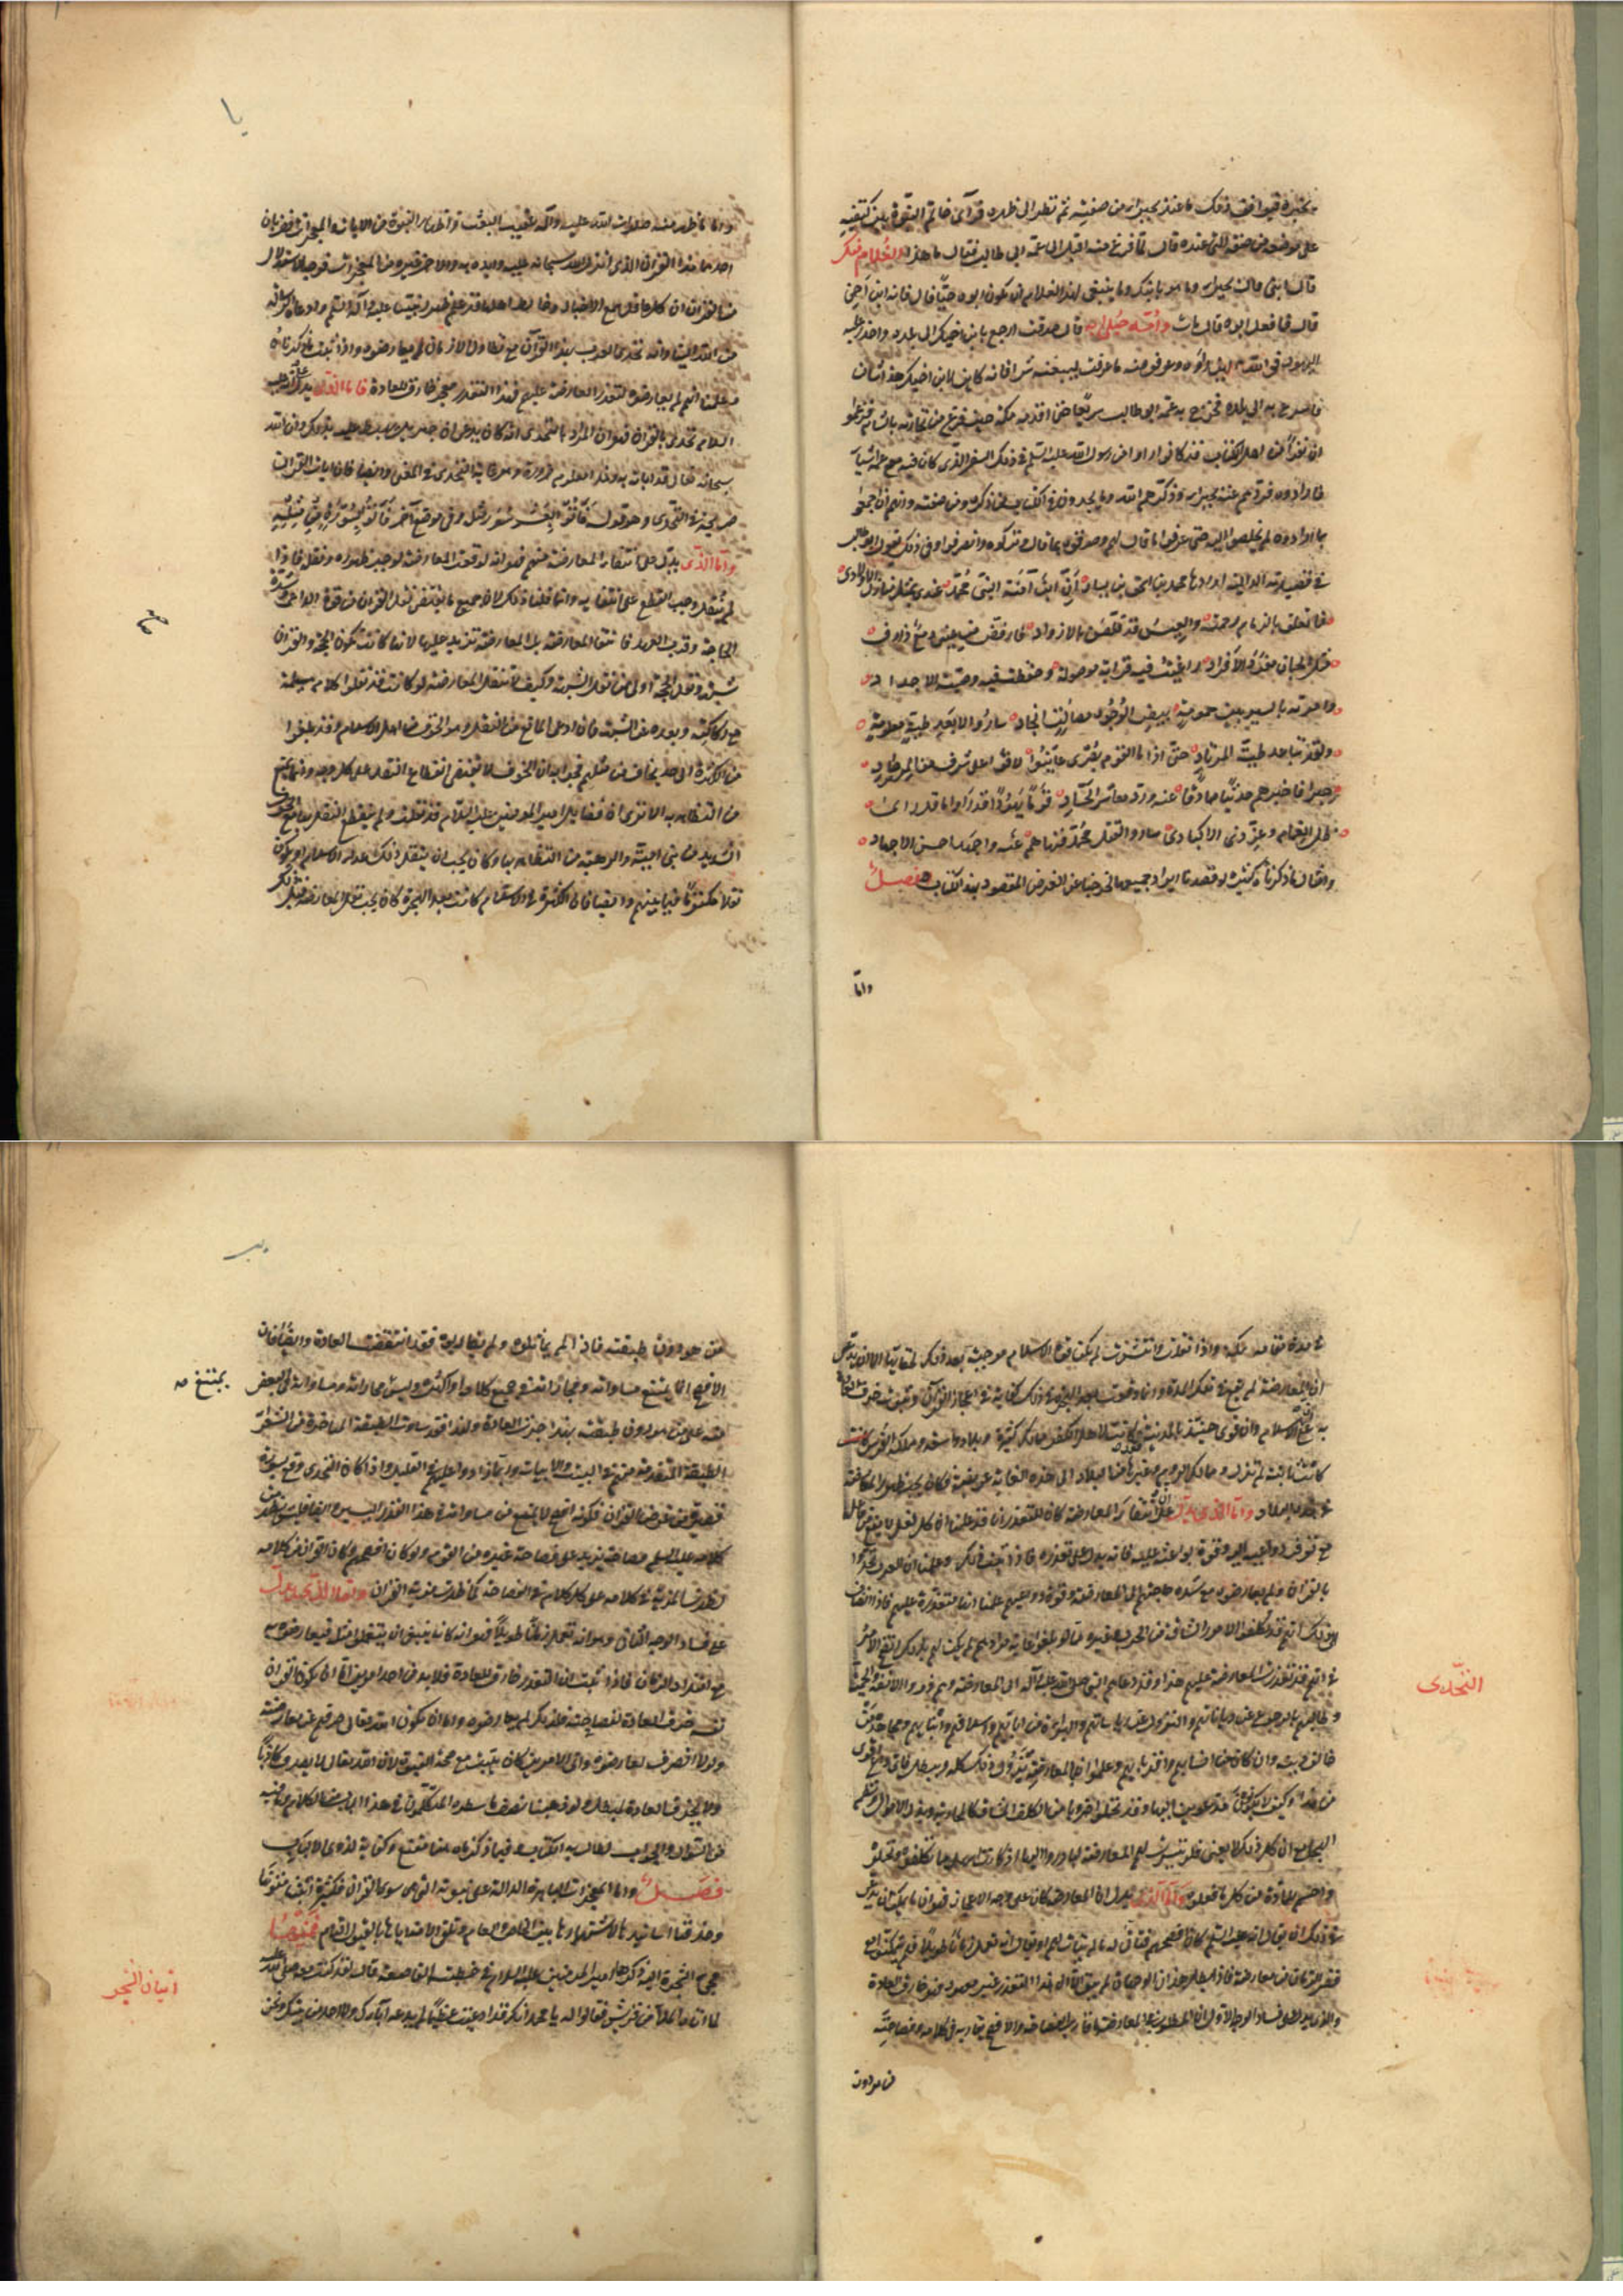 يخبره فيوافق ذلك ما عند بحيرا من صفته ثم نظر الى ظهره فرآى خاتم النبوة بين كتفيه
على موضعه من صفته التي عنده قال فلما فرغ منه اقبل على عمه ابي طالب فقال ما هذا الغلام منك
قال ابني قال بحيرا وما هو بابنك وما ينبغي لهذا الغلام ان يكون ابوه حيا قال فانه ابن اخي
قال فما فعل ابوه قال مات وامه حبلى به قال صدقت ارجع بابن اخيك الى بلده واحذر عليه
اليهود فوالله لئن رأوه وعرفوا منه ما عرفت ليبغنه شرا فانه كاين لابن اخيك هذا شأن
فاسرع به الى بلده فخرج به عمه ابو طالب سريعا حتى اقدمه مكة حين فرغ من تجارته بالشام فزعموا
ان نفرا من اهل الكتاب قد كانوا راوا من رسول الله عليه السلم في ذلك السفر الذي كان فيه مع عمه اشياء
فارادوه فردهم عنه بحيرا وذكرهم الله وما يجدون في الكتاب من ذكره وصفته وانهم ان اجمعوا
بما ارادوه لم يخلصوا اليه حتى عرفوا ما قال لهم وصدقوه بما قال وتركوه وانصرفوا وفي ذلك يقول ابو طالب
في قصيدته الدالية اوردها محمد بن اسحق بن يسار ان ابن آمنة النبي محمد عندي بمثل منازل الاولاد
لما تعلق بالزمام رحمته والعيس قد قلصن بالازواد فارفض من عيني دمع ذارف
مثل الجمان مفرد الافراد راعيت فيه قرابة موصولة وحفظت فيه وصية الاجداد
وامرته بالسير بين عمومة بيض الوجوه مصالت انجاد ساروا لابعد طية معلومة
ولقد تباعد طية المرتاد حتى اذا ما القوم بصرى عاينوا لاقوا على شرف من المرصاد
حبرا فاخبرهم حديثا صادقا عنه ورد معاشر الحساد قوما يهودا قد راوا ما قد رآى
ظل الغمام وعز ذي الاكباد ساروا لقتل محمد فنهاهم عنه واجهد احسن الاجهاد
وامثال ما ذكرناه كثير لو قصدنا ايراد جميعها لخرجنا عن الغرض المقصود بهذا الكتاب فصل
واما
يا
واما ما ظهر منه صلوات الله عليه وآله عقيب البعث واظهار النبوة من الايات والمعجزات فضربان
احدهما هذا القرآن الذي انزله الله سبحانه عليه وايده به والاخر غيره من المعجزات فوجه الاستدلال
من القرآن ان كل عاقل سمع الاخبار وخالط اهلها قد علم ظهور نبينا عليه وآله السلم وادعاءه الرسالة
من الله الينا وانه تحدى العرب بهذا القرآن مع تطاول الازمان فلم يعارضوه واذا ثبت ما ذكرناه
وعلمنا انهم لم يعارضوه لتعذر المعارضة عليهم فهذا التعذر معجز خارق للعادة فاما الذي يدل على انه عليه
السلام تحدى بالقرآن فهو ان المراد بالتحدي انه كان يدعي ان جبرئيل يهبط عليه بذلك وان الله
سبحانه تعالى قد ابانه به وهذا معلوم ضرورة وهو غاية التحدي في المعنى وايضا فان ايات القرآن
صريحة في التحدي وهو قوله فأتوا بعشر سور مثله وفي موضع آخر فأتوا بسورة من مثله
واما الذي يدل على انتفاء المعارضة منهم فهو انه لو وقعت المعارضة لوجب ظهوره ونقله فاذا
لم ينقل وجب القطع على انتفائه وانما قلنا ذلك لان جميع ما يقتضي نقل القرآن من قوة الدواعي وشدة
الحاجة وقرب العهد قائم في المعارضة بل المعارضة تزيد عليها لانها كانت تكون الحجة والقرآن
شبهة ونقل الحجة اولى من نقل الشبهة وكيف لا تنقل المعارضة لو كانت وقد نقلوا كلام مسيلمة
مع ركاكته وبعده عن الشبهة فان ادعى المانع من النقل وهو الخوف من اهل الاسلام وقد بلغوا
من الكثرة الى حد يخاف من مثلهم فجوابه ان الخوف لا يقتضي انقطاع النقل على كل وجه وانما يمنع
من التظاهر به الا ترى ان فضايل امير المؤمنين عليه السلام قد نقلت ولم ينقطع النقل بها مع الخوف
الشديد من بني امية والرهبة من التظاهر بها وكان يجب ان ينقل ذلك عدو الاسلام او يكون
نقلا مكتوما فيما بينهم وايضا فان الكثرة في الاسلام كانت بعد الهجرة وكان يجب نقل المعارضة قبل ذلك
في مدة مقامه بمكة واذا نقلت وانتشرت لم يكن قوة الاسلام موجبة بعد ذلك لخفائها الا ان يدعى
ان المعارضة لم تقع في تلك المدة وانما وقعت بعد الهجرة وفي ذلك كفاية في اعجاز القرآن وثبوت خرق العادة
به على ان الاسلام وان قوي حينئذ بالمدينة فقد كانت لاهل الكفر ممالك كثيرة وبلاد واسعة ومملكة الفرس كانت
كانت ثابتة لم تزل وممالك الروم وغيرها من البلاد الى هذه الغاية عريضة فكان يجب ظهور المعارضة
في هذه البلاد واما الذي يدل على ان انتفاء المعارضة كان للتعذر ان قد علمنا ان كل فعل لا يقع من فاعل
مع توفر دواعيه اليه وقوة بواعثه عليه فانه يدل على تعذره فاذا ثبت ذلك وعلمنا ان العرب تحدوا
بالقرآن ولم يعارضوه مع شدة حاجتهم الى المعارضة وقوة دواعيهم علمنا انها متعذرة عليهم فاذا انضاف
الى ذلك انهم قد تكلفوا الامور الشاقة من الحرب وغيره مما لو بلغوا غاية مرادهم لم يكن لهم بذلك انقطع الامر
في انهم قد تعذرت المعارضة عليهم هذا وقد دعاهم النبي صلى الله عليه وآله الى المعارضة وهم ذوو الانفة والحمية
التحدى
وطالبهم بالرجوع عن دياناتهم والنزول عن رياساتهم والبراءة من ابائهم واسلافهم وابنائهم ومجاهدة من
خالف دينه وان كان من انسابهم واقربائهم وعلموا ان بالمعارضة يزول ذلك كله ويبطل فاي داع اقوى
من هذا وكيف لا يكون كذلك وقد تكلفوا من الكلف الشاقة كالمحاربة وبذل الاموال ونظم
الهجاء مع ان كل ذلك لا يغني فلو تيسرت لهم المعارضة لبادروا اليها اذ كانت اسهل مما تكلفوه وتحملوه
واحسم للمادة من كل ما فعلوه واما الذي يدل ان المعارضة كان على وجه الاعجاز فهو ان ما يمكن ان يدعى
في ذلك ان يقال انه عليه السلم كان افصحهم فتأتى له ما لم يتأت لهم او يقال انه تعمل زمانا طويلا فلم يتمكنوا مع
قصر الزمان من معارضته فاذا بطل هذان الوجهان لم يبق الا ان هذا التعذر غير معهود فهو خارق للعادة
والذي يدل على فساد الوجه الاول ان المطلوب في المعارضة ما قارب الفصاحة والافصح يقاربه في كلامه وفصاحته
من هو دون
يب
من هو دون طبقته فاذا لم يماثلوه ولم يقاربوه فقد انتقضت العادة وايضا فان
الافصح انما يمتنع مساواته ومجاراته في جميع كلامه او اكثره وليس مجاراته ومساواته في البعض
يمتنع صح
منه على من هو دون طبقته بهذا جرت العادة ولهذا قد ساوت الطبقة المتاخرة من الشعراء
الطبقة المتقدمة منهم في البيت والابيات وربما زادوا عليهم في القليل واذا كان التحدي وقع بسورة
قصيرة من عرض القرآن فكونه افصح لا يمنع من مساواته في هذا القدر اليسير وايضا فليس يظهر من
كلامه عليه السلم فصاحة تزيد على فصاحة غيره من القوم ولو كان افصحهم وكان القرآن من كلامه
لظهرت المزية في كلامه على كل كلام في الفصاحة كما ظهرت مزية القرآن واما الذي يدل
على فساد الوجه الثاني وهو انه تعمل زمانا طويلا فهو انه كان ينبغي ان يتعملوا مثله فيعارضوه
مع امتداد الزمان فاذا ثبت ان التعذر خارق للعادة فلا بد من احد امرين اما ان يكون القرآن
نفسه خرق العادة لفصاحته فلذلك لم يعارضوه واما ان يكون الله تعالى صرفهم عن معارضته
ولولا الصرف لعارضوه واي الامرين كان يثبت معه صحة النبوة لان الله تعالى لا يصدق كاذبا
ولا يخرق العادة لمبطل ولو ذهبنا نصف ما سطره المتكلمون في هذا الباب من الكلام وما فيه
من السؤال والجواب لطال به الكتاب وفيما ذكرناه هنا مقنع وكفاية لذوي الالباب
فصل واما المعجزات الباهرة الدالة على نبوته التي هي سوى القرآن فكثيرة اثبتها متفرقا
وحذفنا اسانيدها لاشتهارها بين الخاص والعام وتلقي الامة اياها بالقبول التام فمنها
مجيء الشجرة اليه ذكرها امير المؤمنين عليه السلام في خطبته القاصعة قال لقد كنت معه صلى الله عليه
اتيان الشجر
لما اتاه الملأ من قريش فقالوا له يا محمد انك قد ادعيت عظيما لم يدعه آباؤك ولا احد من بيتك ونحن